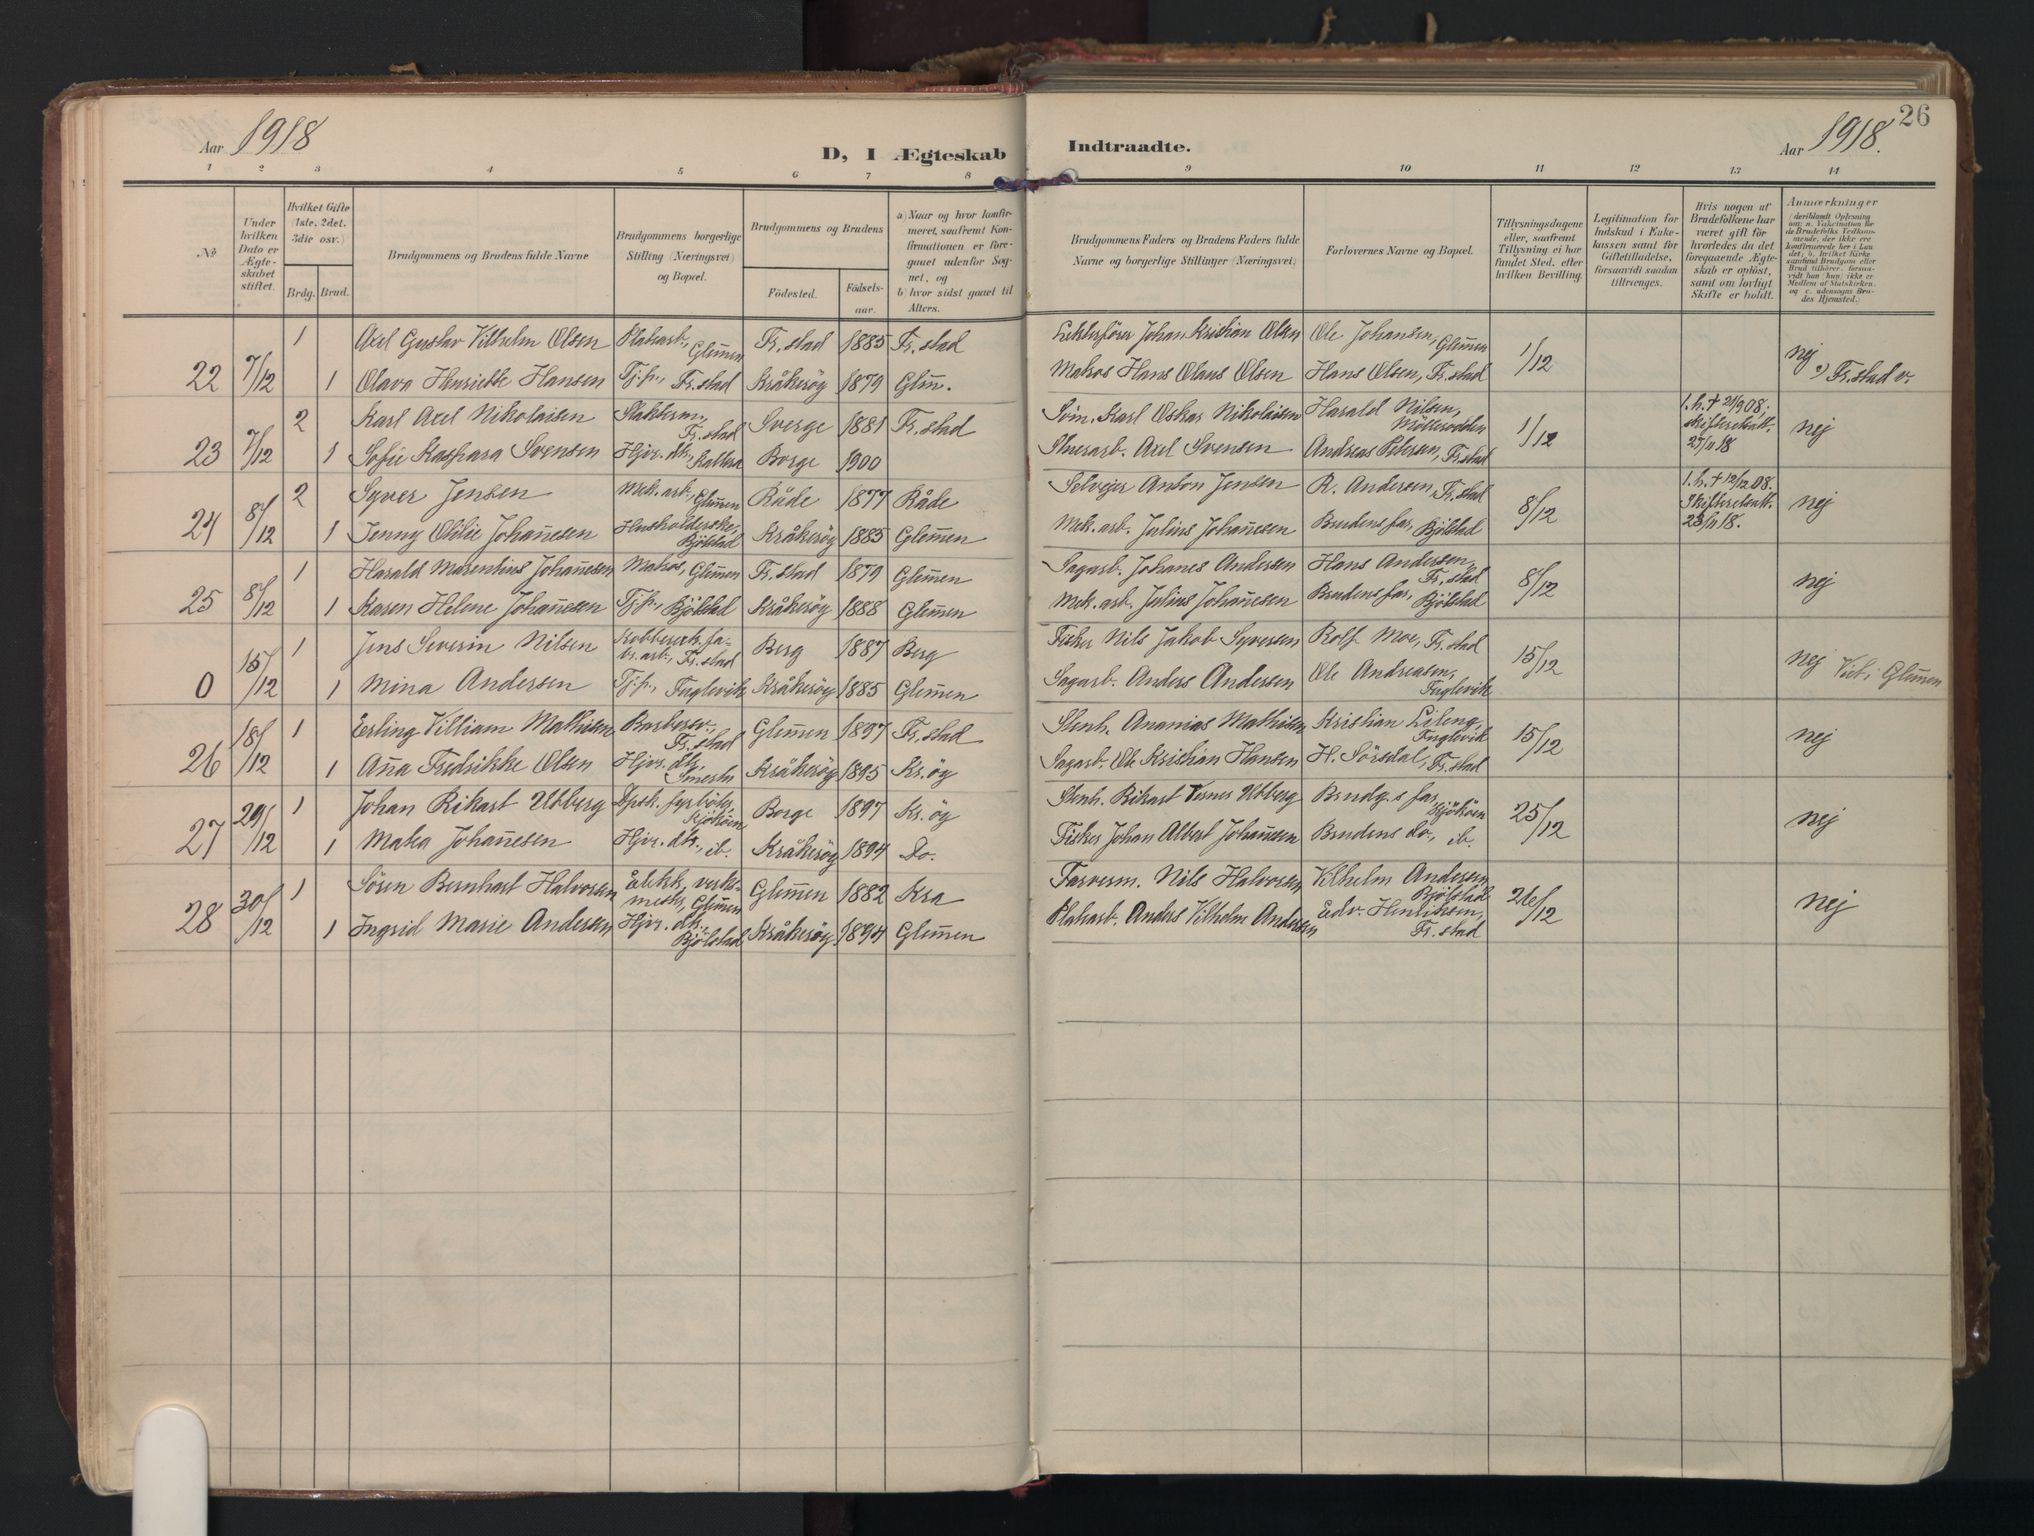 Aar 1918
D, I Ægteskab Indtraadte.
Aar 1918.
26
1 2 3 4 5 6 7 8 9 10 11 12 13 14
No
Under hvilken Dato er Ægteskabet stiftet.
Hvilket Gifte (1ste, 2det. 3die osv.)
Brdg. Brud.
Brudgommens og Brudens fulde Navne
Brudgommens borgerlige Stilling (Næringsvei) og Bopæl.
Brudgommens og Brudens
Födested.
Födsels-aar.
a) Naar og hvor konfirmeret, saafremt Konfirmationen er foregaaet udenfor Sognet, og
b) hvor sidst gaaet til Alters.
Brudgommens Faders og Brudens Faders fulde Navne og borgerlige Stillinger (Næringsvei)
Forlovernes Navne og Bopæl.
Tillysningsdagene eller, saafremt Tillysning ei har fundet Sted, efter hvilken Bevilling.
Legitimation for Indskud i Enkekassen samt for Giftetilladelse, forsaavidt saadan tiltrænges.
Hvis nogen af Brudefolkene har været gift för hvorledes da det foregaaende Ægteskab er oplöst, samt om lovligt Skifte er holdt.
Anmærkninger
22 7/12 1 Axel Gustav Vilhelm Olsen Platearb., Glemen Fr.stad 1885 Fr.stad Lekterförer Johan Kristian Olsen Ole Johansen, Glemen 1/12 nej
1 Olava Henriette Hansen Tj.p., Fr.stad Kråkeröy 1879 Glm. Matros Hans Olaus Olsen Hans Olsen, Fr.stad Fr.stad v.
23 7/12 2 Karl Axel Nikolaisen Fr.stad Sverge 1881 Fr.stad Karl Oskar Nikolaisen Harald Nilsen, Möllerodden 1/12 1.h. + 21/9 08; skifteretsatt. 27/11 18 nej
1 Sofie Kaspara Svensen Hjv. dtr., Kallera Borge 1900 Axel Svensen Andreas Petersen, Fr.stad
24 8/12 2 Syver Jensen Mek. arb., Glemen Råde 1877 Råde Selvejer Anton Jensen R. Andersen, Fr.stad 8/12 1.h. + 12/12 08. Skifteretsatt. 23/11 18. nej
1 Jenny Otilie Johañesen Husholderske, Bjölstad Kråkeröy 1885 Glem̄en Mek. arb. Julius Johañesen Brudens far, Bjölstad
25 8/12 1 Harald Marentius Johañesen Matros, Glemen Fr.stad 1879 Glemen Sagarb. Johanes Andersen Hans Andersen, Fr.stad 8/12 nej
1 Karen Helene Johañesen Tj.p., Bjölstad Kråkeröy 1888 Glemen Mek. arb. Julius Johañesen Brudens far, Bjölstad
0 15/12 1 Jens Severin Nilsen Fr.stad Berg 1887 Berg Fisker Nils Jakob Syversen Rolf Moe, Fr.stad 15/12 nej Viet i Glemen
1 Mina Andersen Tj.p., Fuglevik Kråkeröy 1885 Glemen Sagarb. Anders Andersen Ole Andreasen, Fuglevik
26 18/12 1 Erling Villiam Mathisen Barbersv., Fr.stad Glemen 1897 Fr.stad Stenh. Ananias Mathisen Kristian Lileng, Fuglevik 15/12 nej
1 Aña Fredrikke Olsen Hjv. dtr., Kråkeröy 1895 Kr.öy Sagarb. Ole Kristian Hansen H. Sörsdal, Fr.stad
27 29/12 1 Johan Rikart Ubberg Dpsk. fyrböter, Kjököen Borge 1897 Kr.öy Stenh. Rikart Verner Ubberg Brudg.s far, Kjököen 25/12 nej
1 Matea Johañesen Hjv. dtr., ib. Kråkeröy 1894 Do. Fisker Johan Albert Johañesen Brudens do., ib.
28 30/12 1 Sören Bernhart Halvorsen Elektr. verksmester, Glemen Glemen 1882 Kra Farverm. Nils Halvorsen Vilhelm Andersen, Bjölstad 26/12 nej
1 Ingrid Marie Andersen Hjv. dtr., Bjölstad Kråkeröy 1894 Glemen Platearb. Anders Vilhelm Andersen Edv. Henriksen, Fr.stad